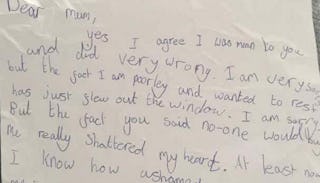 Dear mum,
yes I agree I was mean to you
and did very wrong. I am very so
but the fact I am poorley and wanted to res
has just flew out the window. I am sorry
But the fact you said no-one would
me really shattered my heart. At least now
I know how ashame